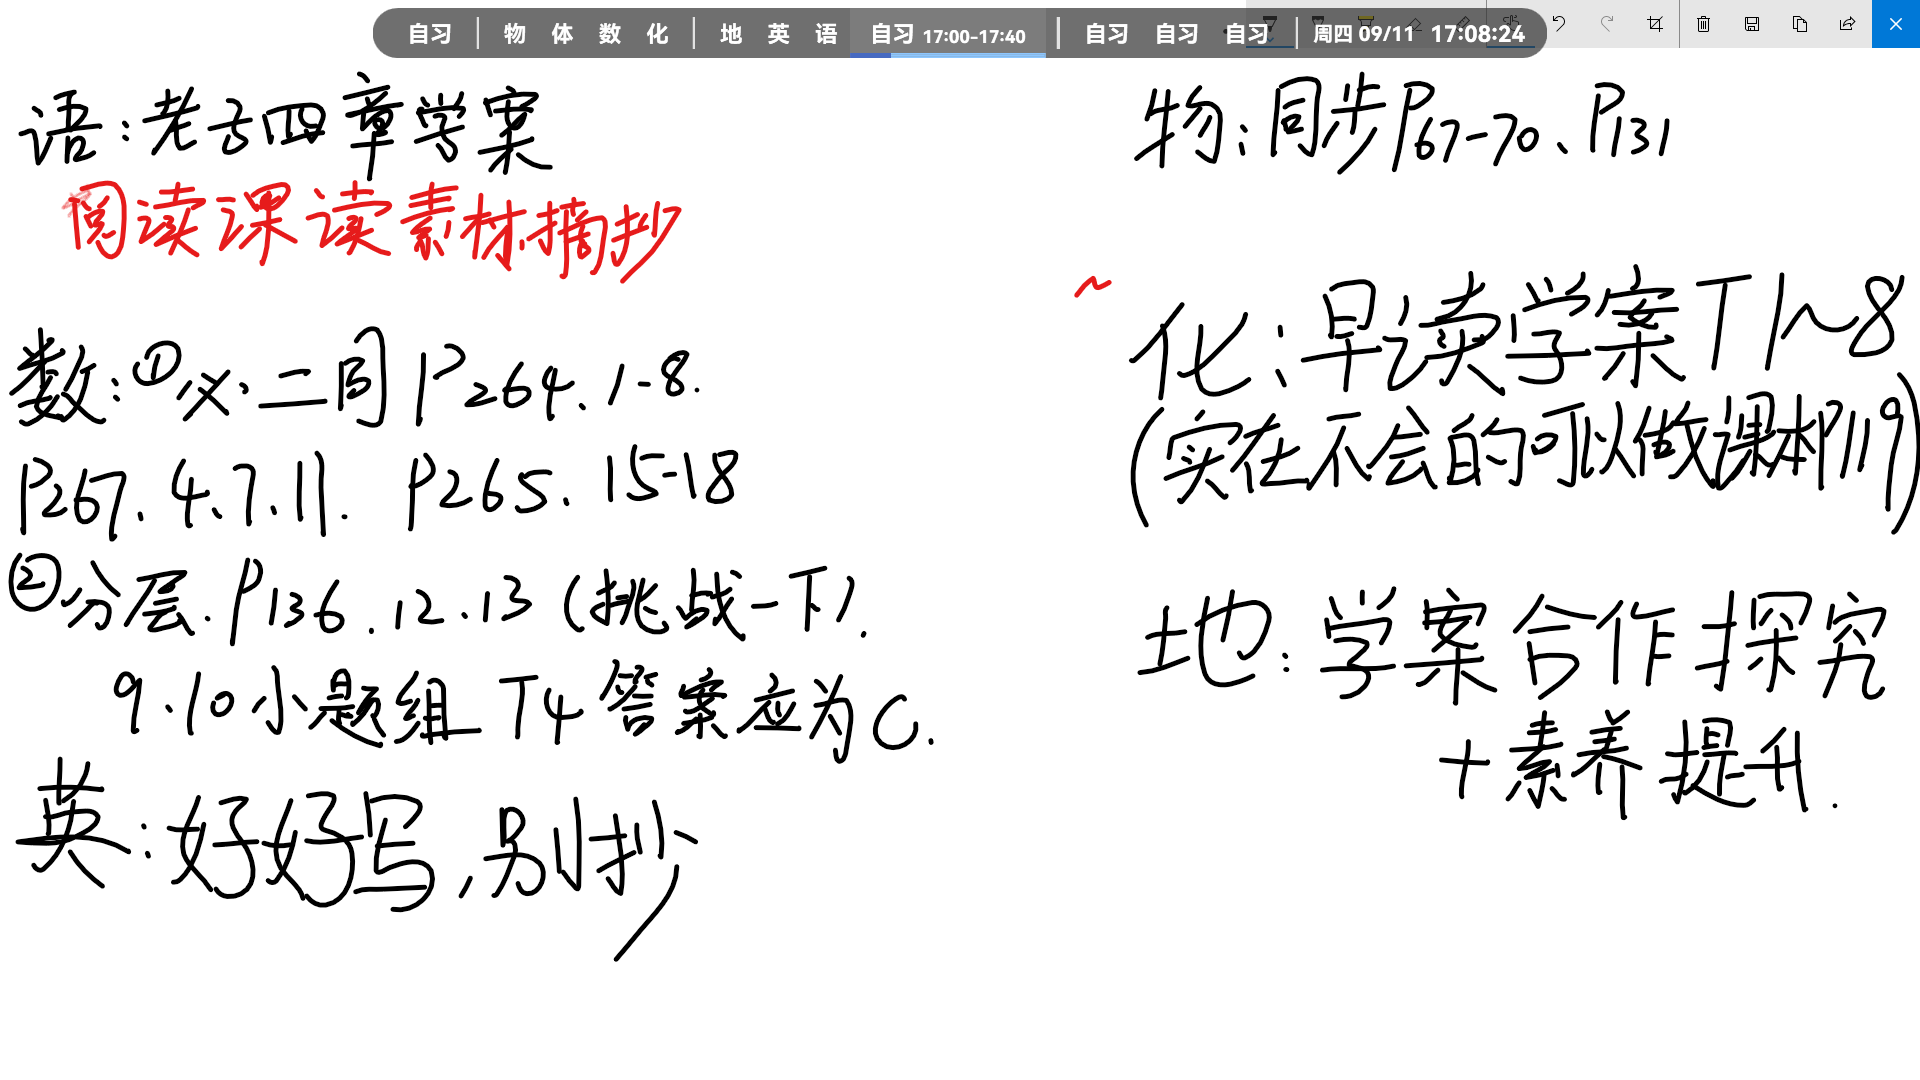 自习 物 体 数 化 地 英 语 自习 17:00-17:40 自习 自习 自习 周四 09/11 17:08:24
语:老子四章学案
阅读课读素材摘抄
数:①必二同 P264. 1-8.
P267. 4. 7. 11. P265. 15-18
②分层. P136. 12. 13 (挑战一下).
9.10小题组 T4 答案应为C.
英:好好写,别抄
物:同步P67-70、P131
化:早读学案T1~8
(实在不会的可以做课本P119)
地:学案合作探究
+素养提升.